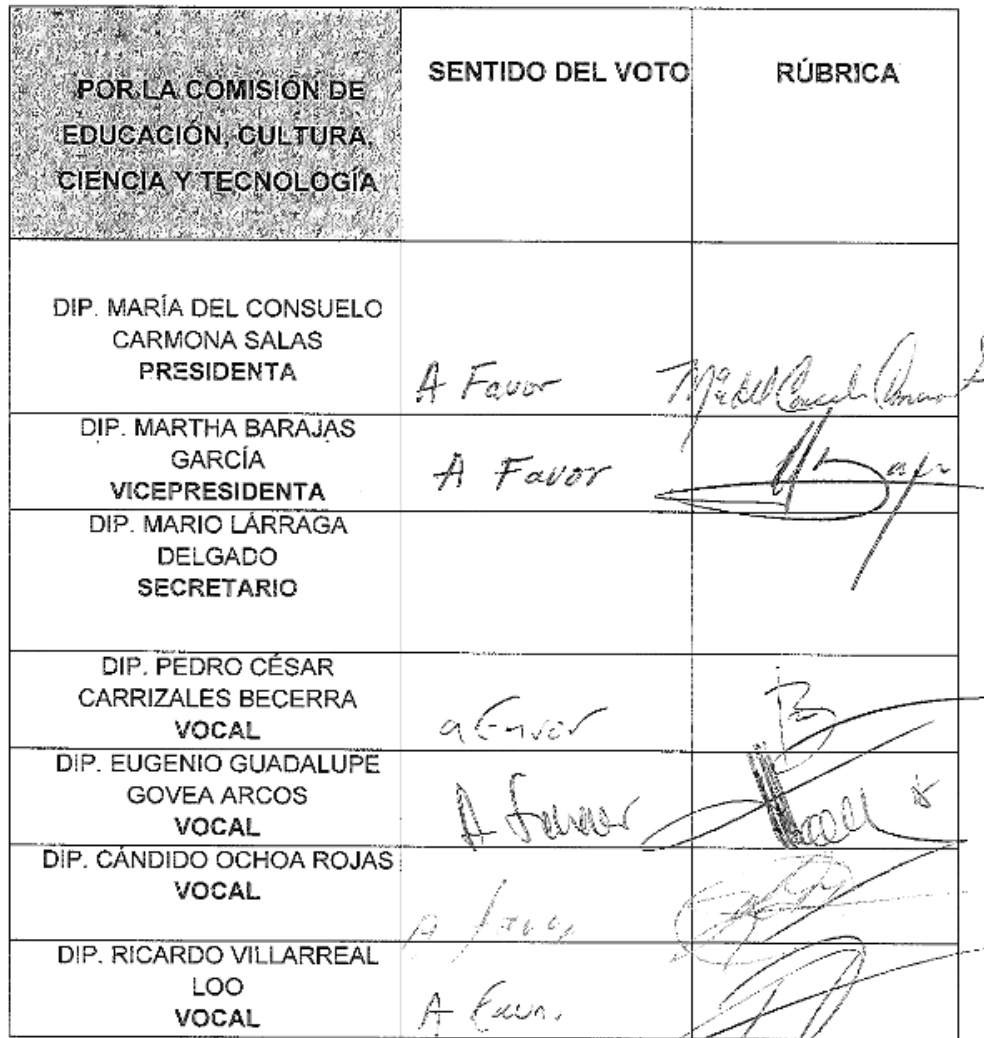 POR LA COMISIÓN DE
EDUCACIÓN, CULTURA,
CIENCIA Y TECNOLOGÍA
SENTIDO DEL VOTO
RÚBRICA
DIP. MARÍA DEL CONSUELO
CARMONA SALAS
PRESIDENTA
A Favor
DIP. MARTHA BARAJAS
GARCÍA
VICEPRESIDENTA
A Favor
DIP. MARIO LÁRRAGA
DELGADO
SECRETARIO
DIP. PEDRO CÉSAR
CARRIZALES BECERRA
VOCAL
a Favor
DIP. EUGENIO GUADALUPE
GOVEA ARCOS
VOCAL
A Favor
DIP. CÁNDIDO OCHOA ROJAS
VOCAL
A favor
DIP. RICARDO VILLARREAL
LOO
VOCAL
A Favor